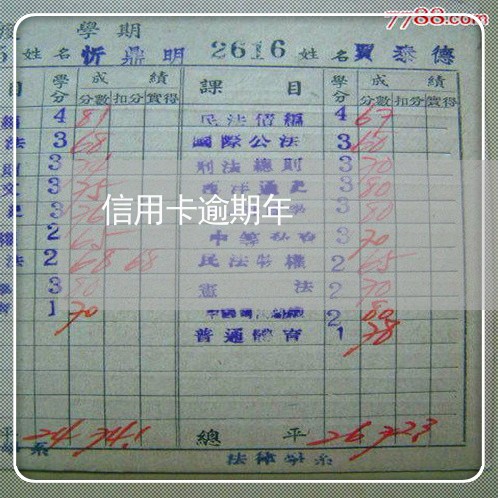 7788.com
學期
姓名 忻鼎明 2616 姓名 賈泰德
目 學分 成績 課目 學分 成績
分數 扣分 實得 分數 扣分 實得
4 81 民法債編 4 67
法 3 68 國際公法 3 60
3 刑法總則 3 70
3 75 西洋通史 3 80
3 3 80
信用卡逾期年
2 65 3 70
法 2 68 68 民法物權 2 65
3 80 憲法 2 70
1 70 2 80
普通體育 1 78
平 24 74.1 總平 26 72.3
系 法律學系